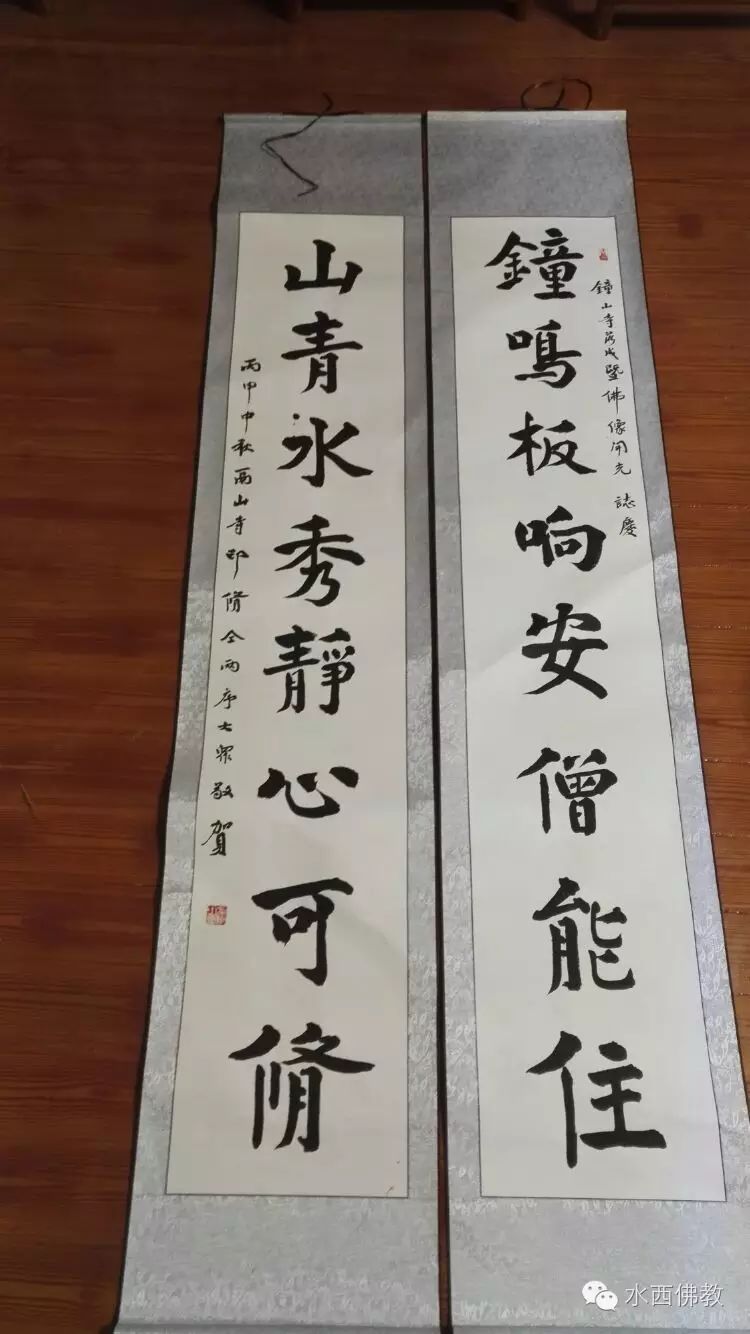 鐘山寺落成暨佛像開光 誌慶
鐘鳴板响安僧能住
山青水秀靜心可脩
丙申中秋西山寺印脩仝兩序大眾敬賀
水西佛教